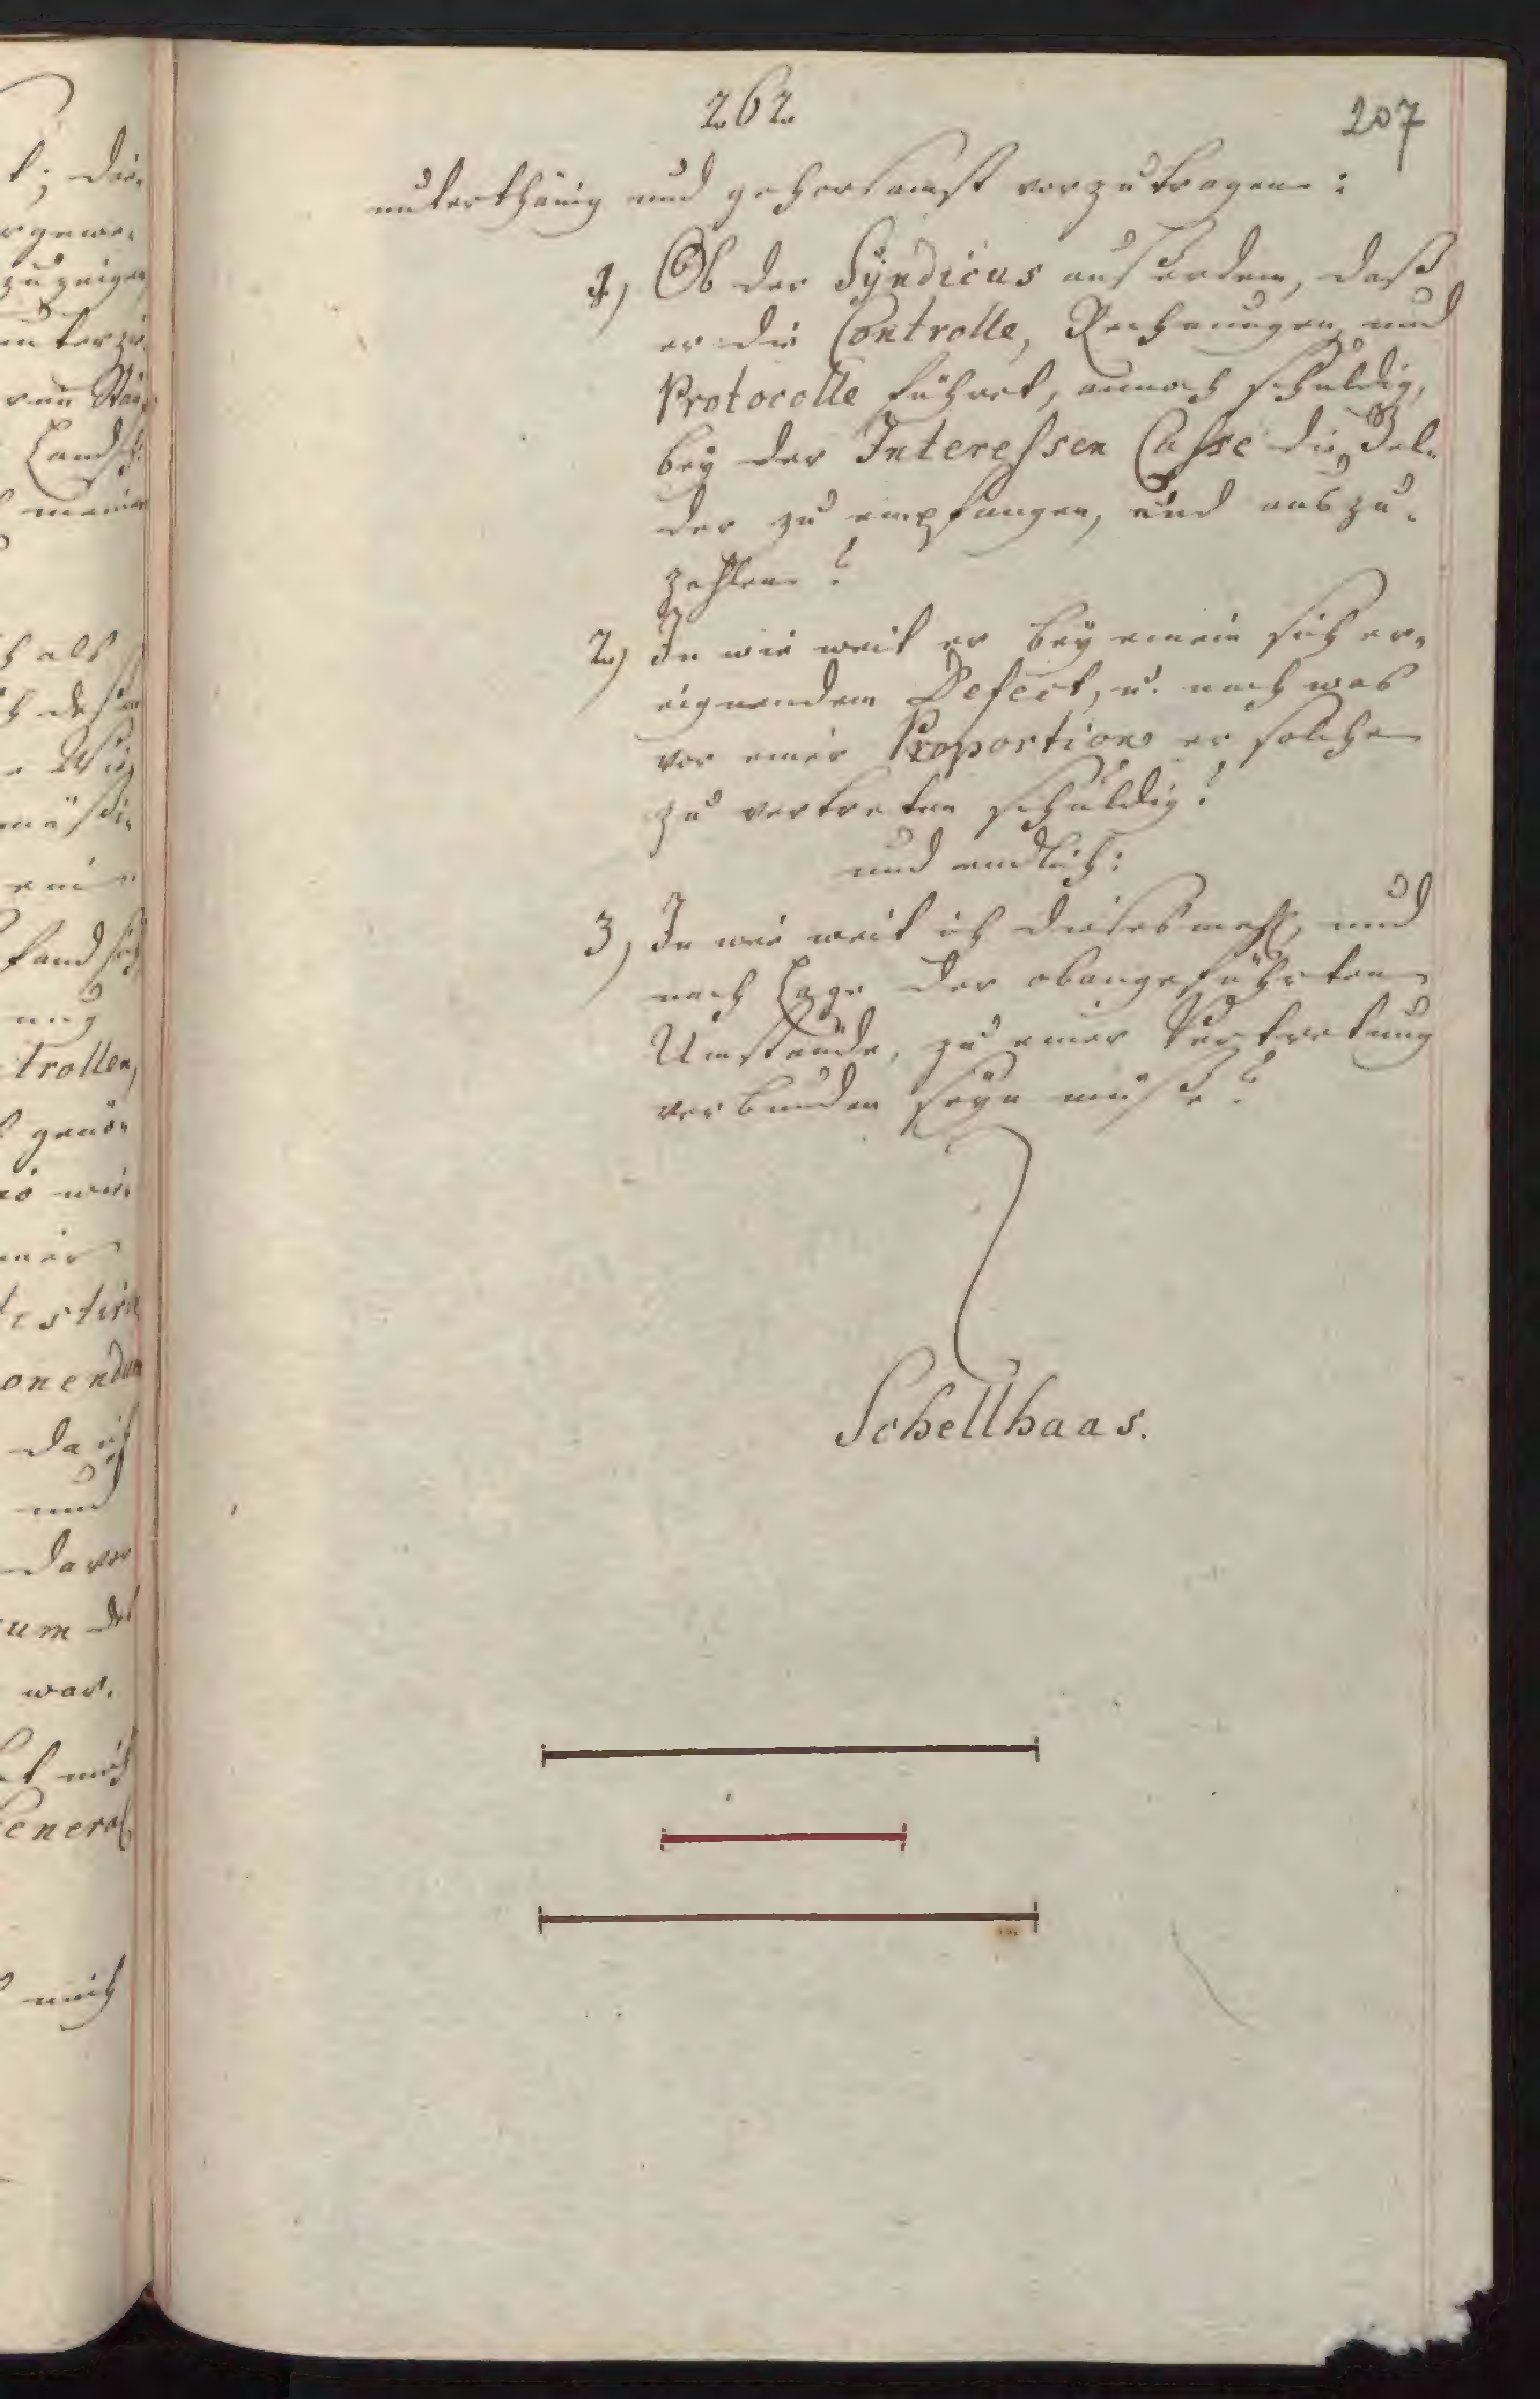 262
207
unterthänig und gehorsamst vorzutragen:
1) Ob der Syndicus außerdem, daß
er die Controlle, Rechnungen und
Protocolle führet, annoch schuldig,
bey der Interessen Casse die Gel-
der zu empfangen, und auszu-
zahlen?
2) In wie weit er bey einem sich er-
eignendem Defect, u. nach was
vor einer Proportion er solchen
zu vertreten schuldig?
und endlich:
3) In wie weit ich diesesmahl, und
nach Lage der obangeführten
Umstände, zu einer Vertretung
verbunden seyn müße?
Schellhaas.